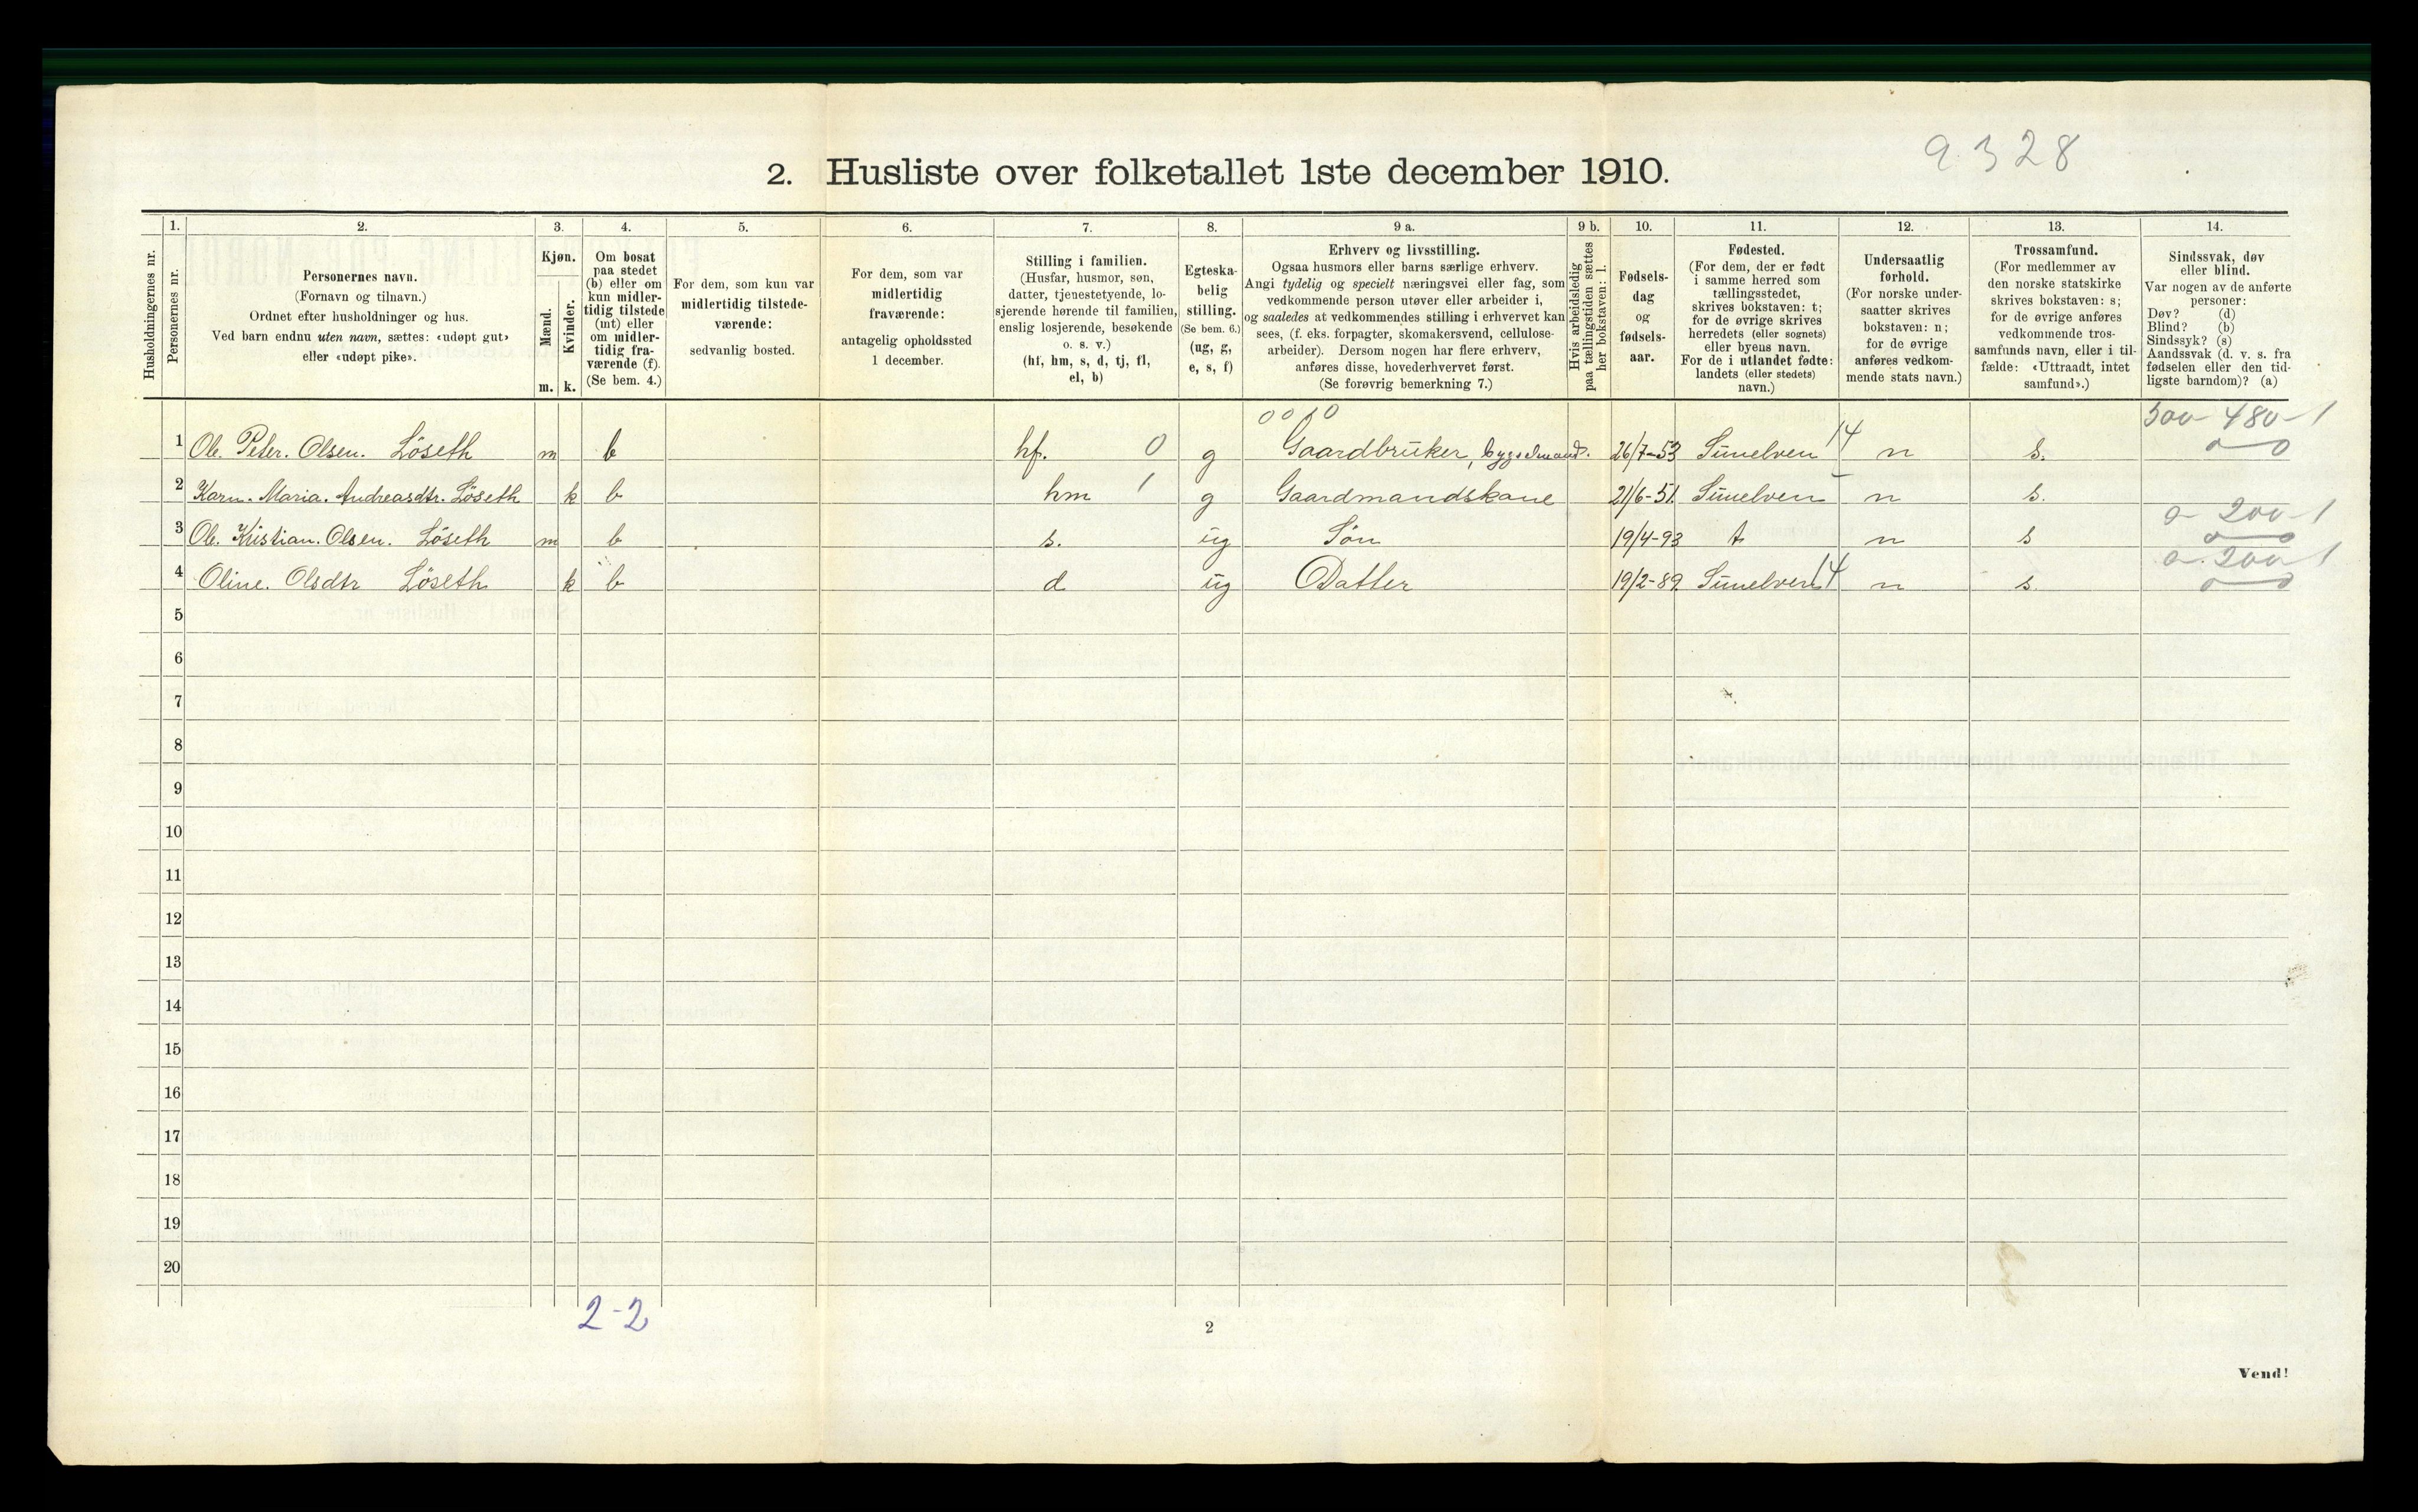 9328
2. Husliste over folketallet 1ste december 1910.
Husholdningernes nr.
1.
Personernes nr.
2.
Personernes navn.
(Fornavn og tilnavn.)
Ordnet efter husholdninger og hus.
Ved barn endnu uten navn, sættes: «udøpt gut»
eller «udøpt pike».
3.
Kjøn.
Mænd.
Kvinder.
m. k.
4.
Om bosat
paa stedet
(b) eller om
kun midler-
tidig tilstede
(mt) eller
om midler-
tidig fra-
værende (f).
(Se bem. 4.)
5.
For dem, som kun var
midlertidig tilstede-
værende:
sedvanlig bosted.
6.
For dem, som var
midlertidig
fraværende:
antagelig opholdssted
1 december.
7.
Stilling i familien.
(Husfar, husmor, søn,
datter, tjenestetyende, lo-
sjerende hørende til familien,
enslig losjerende, besøkende
o. s. v.)
(hf, hm, s, d, tj, fl,
el, b)
8.
Egteska-
belig
stilling.
(Se bem. 6.)
(ug, g,
e, s, f)
9 a.
Erhverv og livsstilling.
Ogsaa husmors eller barns særlige erhverv.
Angi tydelig og specielt næringsvei eller fag, som
vedkommende person utøver eller arbeider i,
og saaledes at vedkommendes stilling i erhvervet kan
sees, (f. eks. forpagter, skomakersvend, cellulose-
arbeider). Dersom nogen har flere erhverv,
anføres disse, hovederhvervet først.
(Se forøvrig bemerkning 7.)
9 b.
Hvis arbeidsledig
paa tællingstiden sættes
her bokstaven: l.
10.
Fødsels-
dag
og
fødsels-
aar.
11.
Fødested.
(For dem, der er født
i samme herred som
tællingsstedet,
skrives bokstaven: t;
for de øvrige skrives
herredets (eller sognets)
eller byens navn.
For de i utlandet fødte:
landets (eller stedets)
navn.)
12.
Undersaatlig
forhold.
(For norske under-
saatter skrives
bokstaven: n;
for de øvrige
anføres vedkom-
mende stats navn.)
13.
Trossamfund.
(For medlemmer av
den norske statskirke
skrives bokstaven: s;
for de øvrige anføres
vedkommende tros-
samfunds navn, eller i til-
fælde: «Uttraadt, intet
samfund».)
14.
Sindssvak, døv
eller blind.
Var nogen av de anførte
personer:
Døv? (d)
Blind? (b)
Sindssyk? (s)
Aandssvak (d. v. s. fra
fødselen eller den tid-
ligste barndom)? (a)
500-480-1
1 Ole. Peter. Olsen. Löseth m b hf. 0 g Gaardbruker, bygselmand. 26/7-53 Sunelven 14 n s.
2 Karn. Maria. Andreasdtr. Löseth k b hm 1 g Gaardmandskone 21/6-51 Sunelven n s.
0-200-1
3 Ole. Kristian. Olsen. Löseth m b s. ug Søn 19/4-93 t n s
0-200-1
4 Oline. Olsdtr Löseth k b d ug Datter 19/2-89. Sunelven 14 n s.
5
6
7
8
9
10
11
12
13
14
15
16
17
18
19
20
2-2
2
Vend!